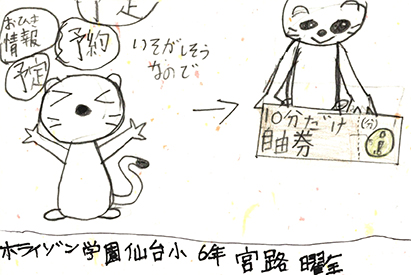 予定
おひさ
情報
予約
予定
いそがしそう
なので
10分だけ
自由券
(分)
ホライゾン学園仙台小 6年 宮路 曜全